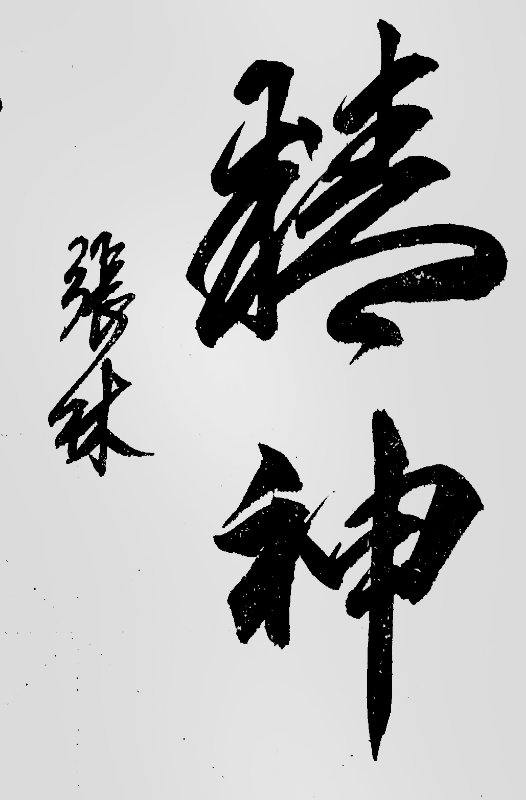 精神
張林